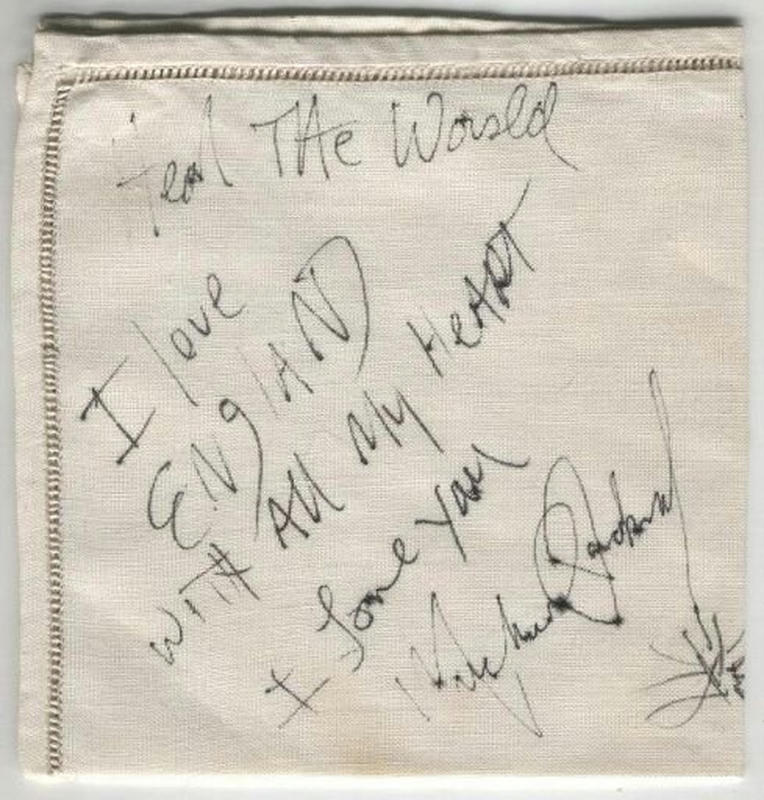 Heal THe World
I love
ENglAND
WITH All My HeART
I Love you
Michael Jackson